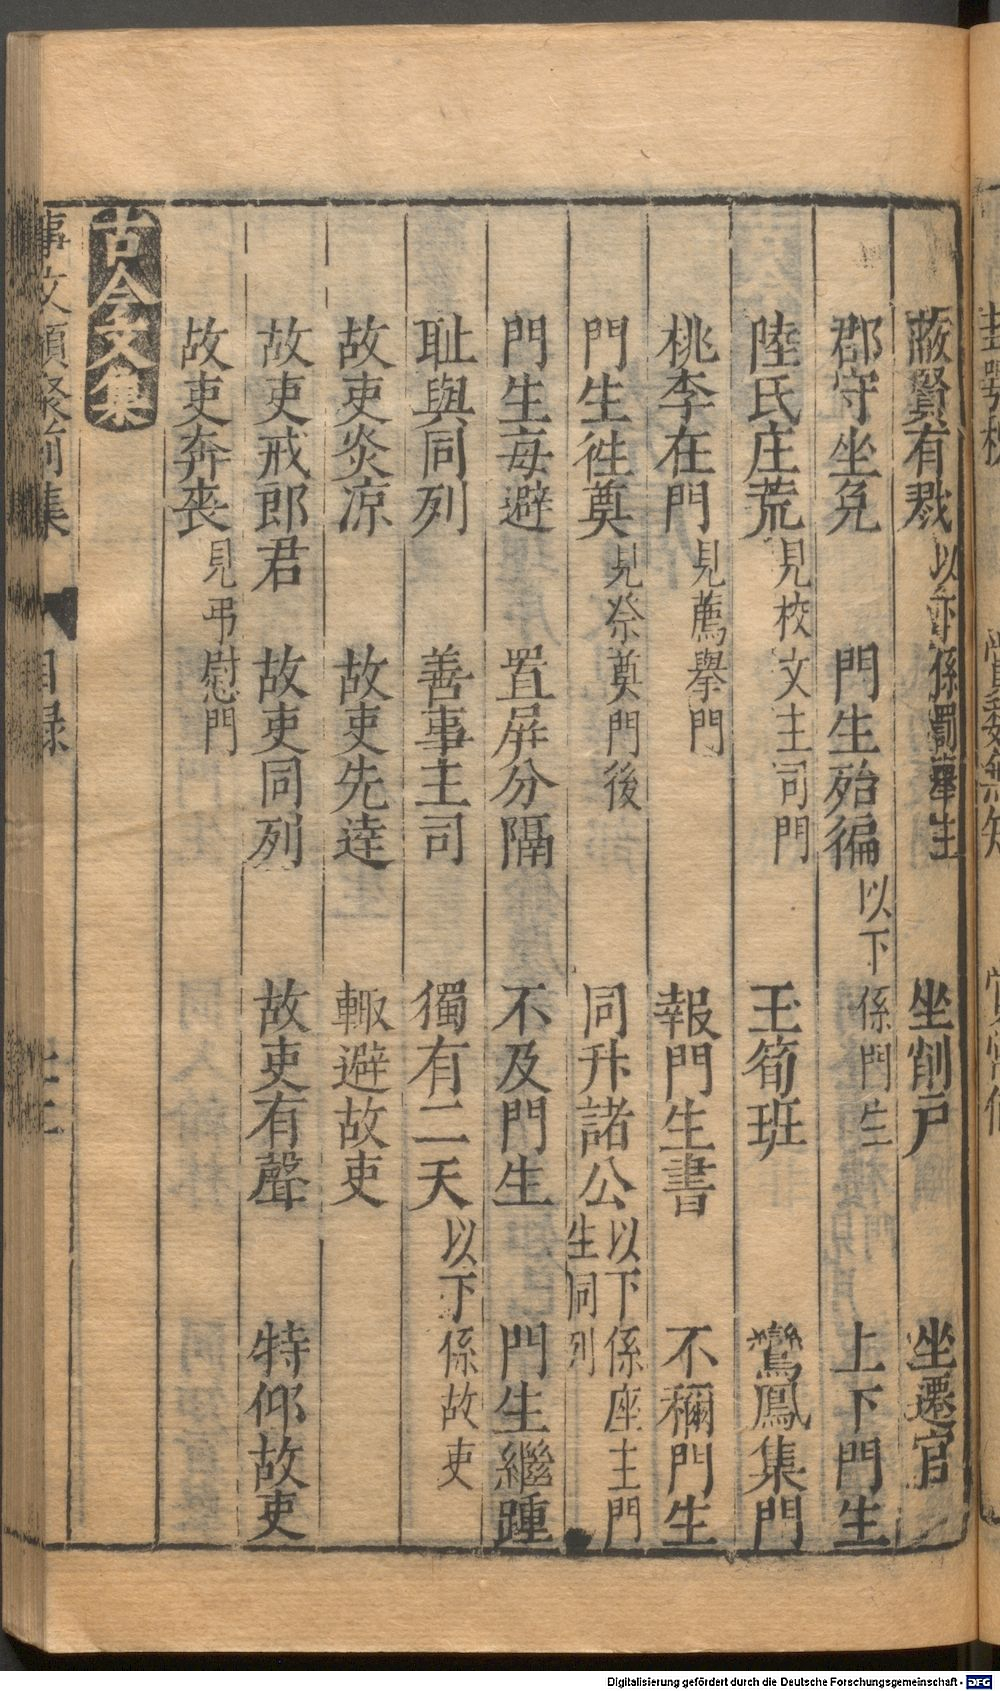 蔽賢有戮 以下係罰舉主 坐削戶 坐遷官
郡守坐免 門生殆徧 以下係門生 上下門生
陸氏庄荒 見校文主司門 玉筍班 鸞鳳集門
桃李在門 見薦舉門 報門生書 不稱門生
門生徃奠 見祭奠門後 同升諸公 以下係座主門生同列
門生毎避 置屏分隔 不及門生 門生繼踵
耻與同列 善事主司 獨有二天 以下係故吏
故吏炎凉 故吏先達 輙避故吏
故吏戒郎君 故吏同列 故吏有聲 特仰故吏
故吏奔喪 見弔慰門
古今文集
事文類聚前集 目録
Digitalisierung gefördert durch die Deutsche Forschungsgemeinschaft - DFG